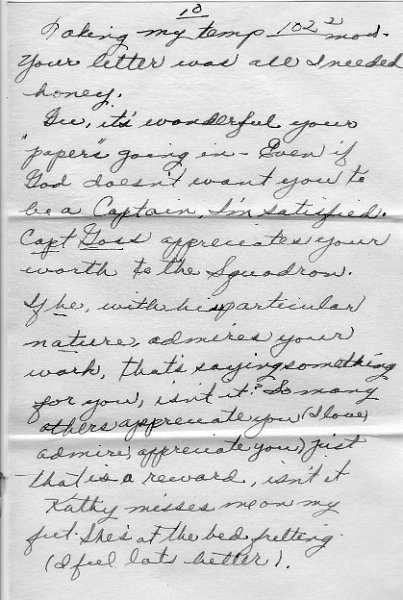 10
Taking my temp 102² mod.
Your letter was all I needed
honey.
Gee, it's wonderful your
"papers" going in - Even if
God doesn't want you to
be a Captain, I'm satisfied.
Capt Goss appreciates your
worth to the Squadron.
If he, with his particular
nature, admires your
work, that's saying something
for you, isn't it? So many
others appreciate you (I love,
admire, appreciate you) just
that is a reward, isn't it
Kathy misses me on my
feet. She's at the bed fretting
(I feel lots better).